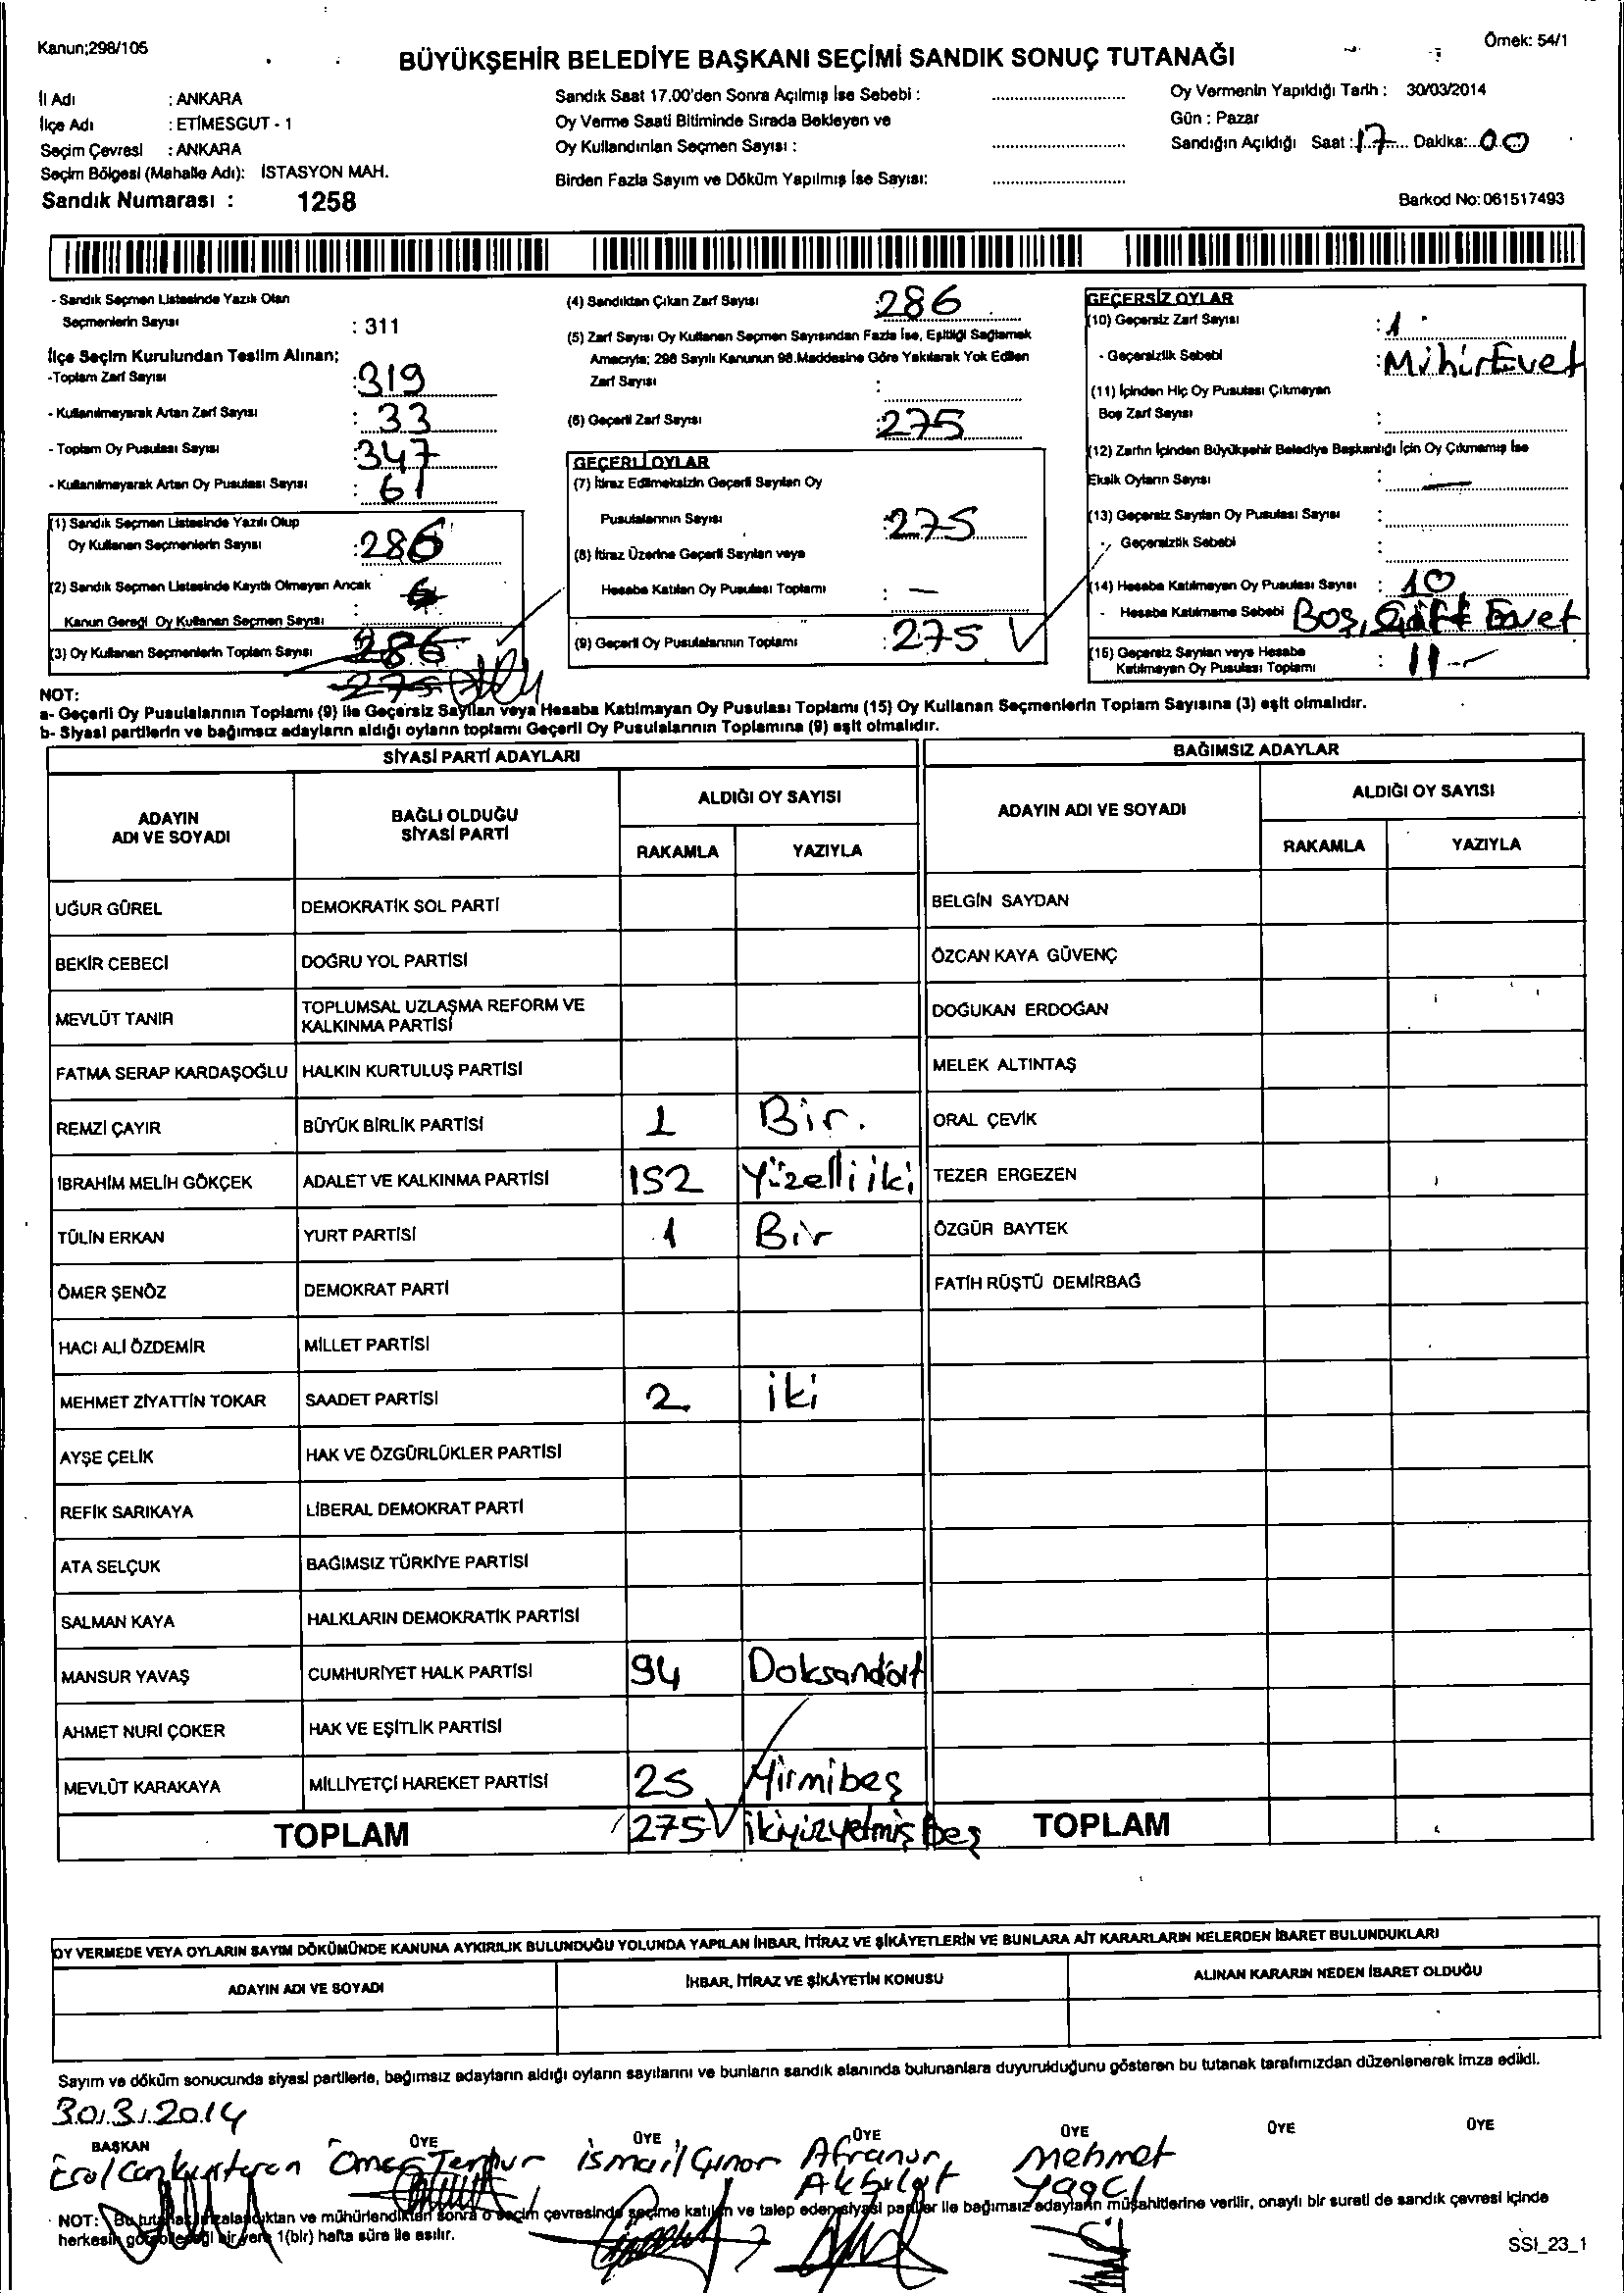 Kanun;298/105
Örnek: 54/1
BÜYÜKŞEHİR BELEDİYE BAŞKANI SEÇİMİ SANDIK SONUÇ TUTANAĞI
İl Adı : ANKARA
İlçe Adı : ETİMESGUT - 1
Seçim Çevresi : ANKARA
Seçim Bölgesi (Mahalle Adı): İSTASYON MAH.
Sandık Numarası : 1258
Sandık Saat 17.00'den Sonra Açılmış İse Sebebi :
Oy Verme Saati Bitiminde Sırada Bekleyen ve
Oy Kullandırılan Seçmen Sayısı :
Birden Fazla Sayım ve Döküm Yapılmış İse Sayısı:
Oy Vermenin Yapıldığı Tarih : 30/03/2014
Gün : Pazar
Sandığın Açıldığı Saat : 17 Dakika: 00
Barkod No: 061517493
- Sandık Seçmen Listesinde Yazılı Olan
Seçmenlerin Sayısı : 311
İlçe Seçim Kurulundan Teslim Alınan;
-Toplam Zarf Sayısı : 319
- Kullanılmayarak Artan Zarf Sayısı : 33
- Toplam Oy Pusulası Sayısı : 347
- Kullanılmayarak Artan Oy Pusulası Sayısı : 61
(1) Sandık Seçmen Listesinde Yazılı Olup
Oy Kullanan Seçmenlerin Sayısı : 286
(2) Sandık Seçmen Listesinde Kayıtlı Olmayan Ancak
Kanun Gereği Oy Kullanan Seçmen Sayısı :
(3) Oy Kullanan Seçmenlerin Toplam Sayısı : 286
275
(4) Sandıktan Çıkan Zarf Sayısı : 286
(5) Zarf Sayısı Oy Kullanan Seçmen Sayısından Fazla İse, Eşitliği Sağlamak
Amacıyla; 298 Sayılı Kanunun 98.Maddesine Göre Yakılarak Yok Edilen
Zarf Sayısı :
(6) Geçerli Zarf Sayısı : 275
GEÇERLİ OYLAR
(7) İtiraz Edilmeksizin Geçerli Sayılan Oy
Pusulalarının Sayısı : 275
(8) İtiraz Üzerine Geçerli Sayılan veya
Hesaba Katılan Oy Pusulası Toplamı : —
(9) Geçerli Oy Pusulalarının Toplamı : 275
GEÇERSİZ OYLAR
(10) Geçersiz Zarf Sayısı : 1
- Geçersizlik Sebebi : Mühür Evet
(11) İçinden Hiç Oy Pusulası Çıkmayan
Boş Zarf Sayısı :
(12) Zarfın İçinden Büyükşehir Belediye Başkanlığı İçin Oy Çıkmamış İse
Eksik Oyların Sayısı : —
(13) Geçersiz Sayılan Oy Pusulası Sayısı :
- Geçersizlik Sebebi :
(14) Hesaba Katılmayan Oy Pusulası Sayısı : 10
- Hesaba Katılmama Sebebi Boş, Çift Evet
(15) Geçersiz Sayılan veya Hesaba
Katılmayan Oy Pusulası Toplamı : 11
NOT:
a- Geçerli Oy Pusulalarının Toplamı (9) ile Geçersiz Sayılan veya Hesaba Katılmayan Oy Pusulası Toplamı (15) Oy Kullanan Seçmenlerin Toplam Sayısına (3) eşit olmalıdır.
b- Siyasi partilerin ve bağımsız adayların aldığı oyların toplamı Geçerli Oy Pusulalarının Toplamına (9) eşit olmalıdır.
SİYASİ PARTİ ADAYLARI
ADAYIN ADI VE SOYADI
BAĞLI OLDUĞU SİYASİ PARTİ
ALDIĞI OY SAYISI
RAKAMLA YAZIYLA
UĞUR GÜREL DEMOKRATİK SOL PARTİ
BEKİR CEBECİ DOĞRU YOL PARTİSİ
MEVLÜT TANIR TOPLUMSAL UZLAŞMA REFORM VE KALKINMA PARTİSİ
FATMA SERAP KARDAŞOĞLU HALKIN KURTULUŞ PARTİSİ
REMZİ ÇAYIR BÜYÜK BİRLİK PARTİSİ 1 Bir.
İBRAHİM MELİH GÖKÇEK ADALET VE KALKINMA PARTİSİ 152 Yüzelli iki
TÜLİN ERKAN YURT PARTİSİ 1 Bir
ÖMER ŞENÖZ DEMOKRAT PARTİ
HACI ALİ ÖZDEMİR MİLLET PARTİSİ
MEHMET ZİYATTİN TOKAR SAADET PARTİSİ 2 iki
AYŞE ÇELİK HAK VE ÖZGÜRLÜKLER PARTİSİ
REFİK SARIKAYA LİBERAL DEMOKRAT PARTİ
ATA SELÇUK BAĞIMSIZ TÜRKİYE PARTİSİ
SALMAN KAYA HALKLARIN DEMOKRATİK PARTİSİ
MANSUR YAVAŞ CUMHURİYET HALK PARTİSİ 94 Doksandört
AHMET NURİ ÇOKER HAK VE EŞİTLİK PARTİSİ
MEVLÜT KARAKAYA MİLLİYETÇİ HAREKET PARTİSİ 25 Yirmibeş
TOPLAM 275 ikiyüzyetmişbeş
BAĞIMSIZ ADAYLAR
ADAYIN ADI VE SOYADI
ALDIĞI OY SAYISI
RAKAMLA YAZIYLA
BELGİN SAYDAN
ÖZCAN KAYA GÜVENÇ
DOĞUKAN ERDOĞAN
MELEK ALTINTAŞ
ORAL ÇEVİK
TEZER ERGEZEN
ÖZGÜR BAYTEK
FATİH RÜŞTÜ DEMİRBAĞ
TOPLAM
OY VERMEDE VEYA OYLARIN SAYIM DÖKÜMÜNDE KANUNA AYKIRILIK BULUNDUĞU YOLUNDA YAPILAN İHBAR, İTİRAZ VE ŞİKÂYETLERİN VE BUNLARA AİT KARARLARIN NELERDEN İBARET BULUNDUKLARI
ADAYIN ADI VE SOYADI
İHBAR, İTİRAZ VE ŞİKÂYETİN KONUSU
ALINAN KARARIN NEDEN İBARET OLDUĞU
Sayım ve döküm sonucunda siyasi partilerle, bağımsız adayların aldığı oyların sayılarını ve bunların sandık alanında bulunanlara duyurulduğunu gösteren bu tutanak tarafımızdan düzenlenerek imza edildi.
30.3.2014
BAŞKAN ÜYE ÜYE ÜYE ÜYE ÜYE ÜYE
Erol Ömer İsmail Çınar Afranur Akbulut Mehmet Yağcı
NOT: Bu tutanak imzalandıktan ve mühürlendikten sonra o seçim çevresinde seçime katılan ve talep eden siyasi partiler ile bağımsız adayların müşahitlerine verilir, onaylı bir sureti de sandık çevresi içinde
herkesin görebileceği bir yere 1(bir) hafta süre ile asılır.
SSI_23_1